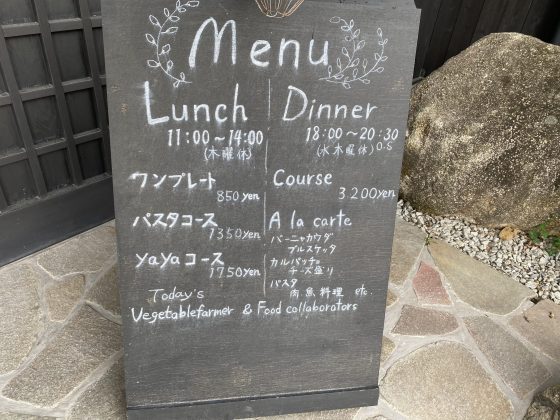 Menu
Lunch
11:00～14:00
(木曜休)
ワンプレート
850yen
パスタコース
1350yen
yaya コース
1750yen
Dinner
18:00～20:30
(水木曜休) O.S
Course
3200yen
A la carte
バーニャカウダ
ブルスケッタ
カルパッチョ
チーズ盛り
パスタ
肉魚料理 etc.
Today's
Vegetablefarmer & Food collaborators